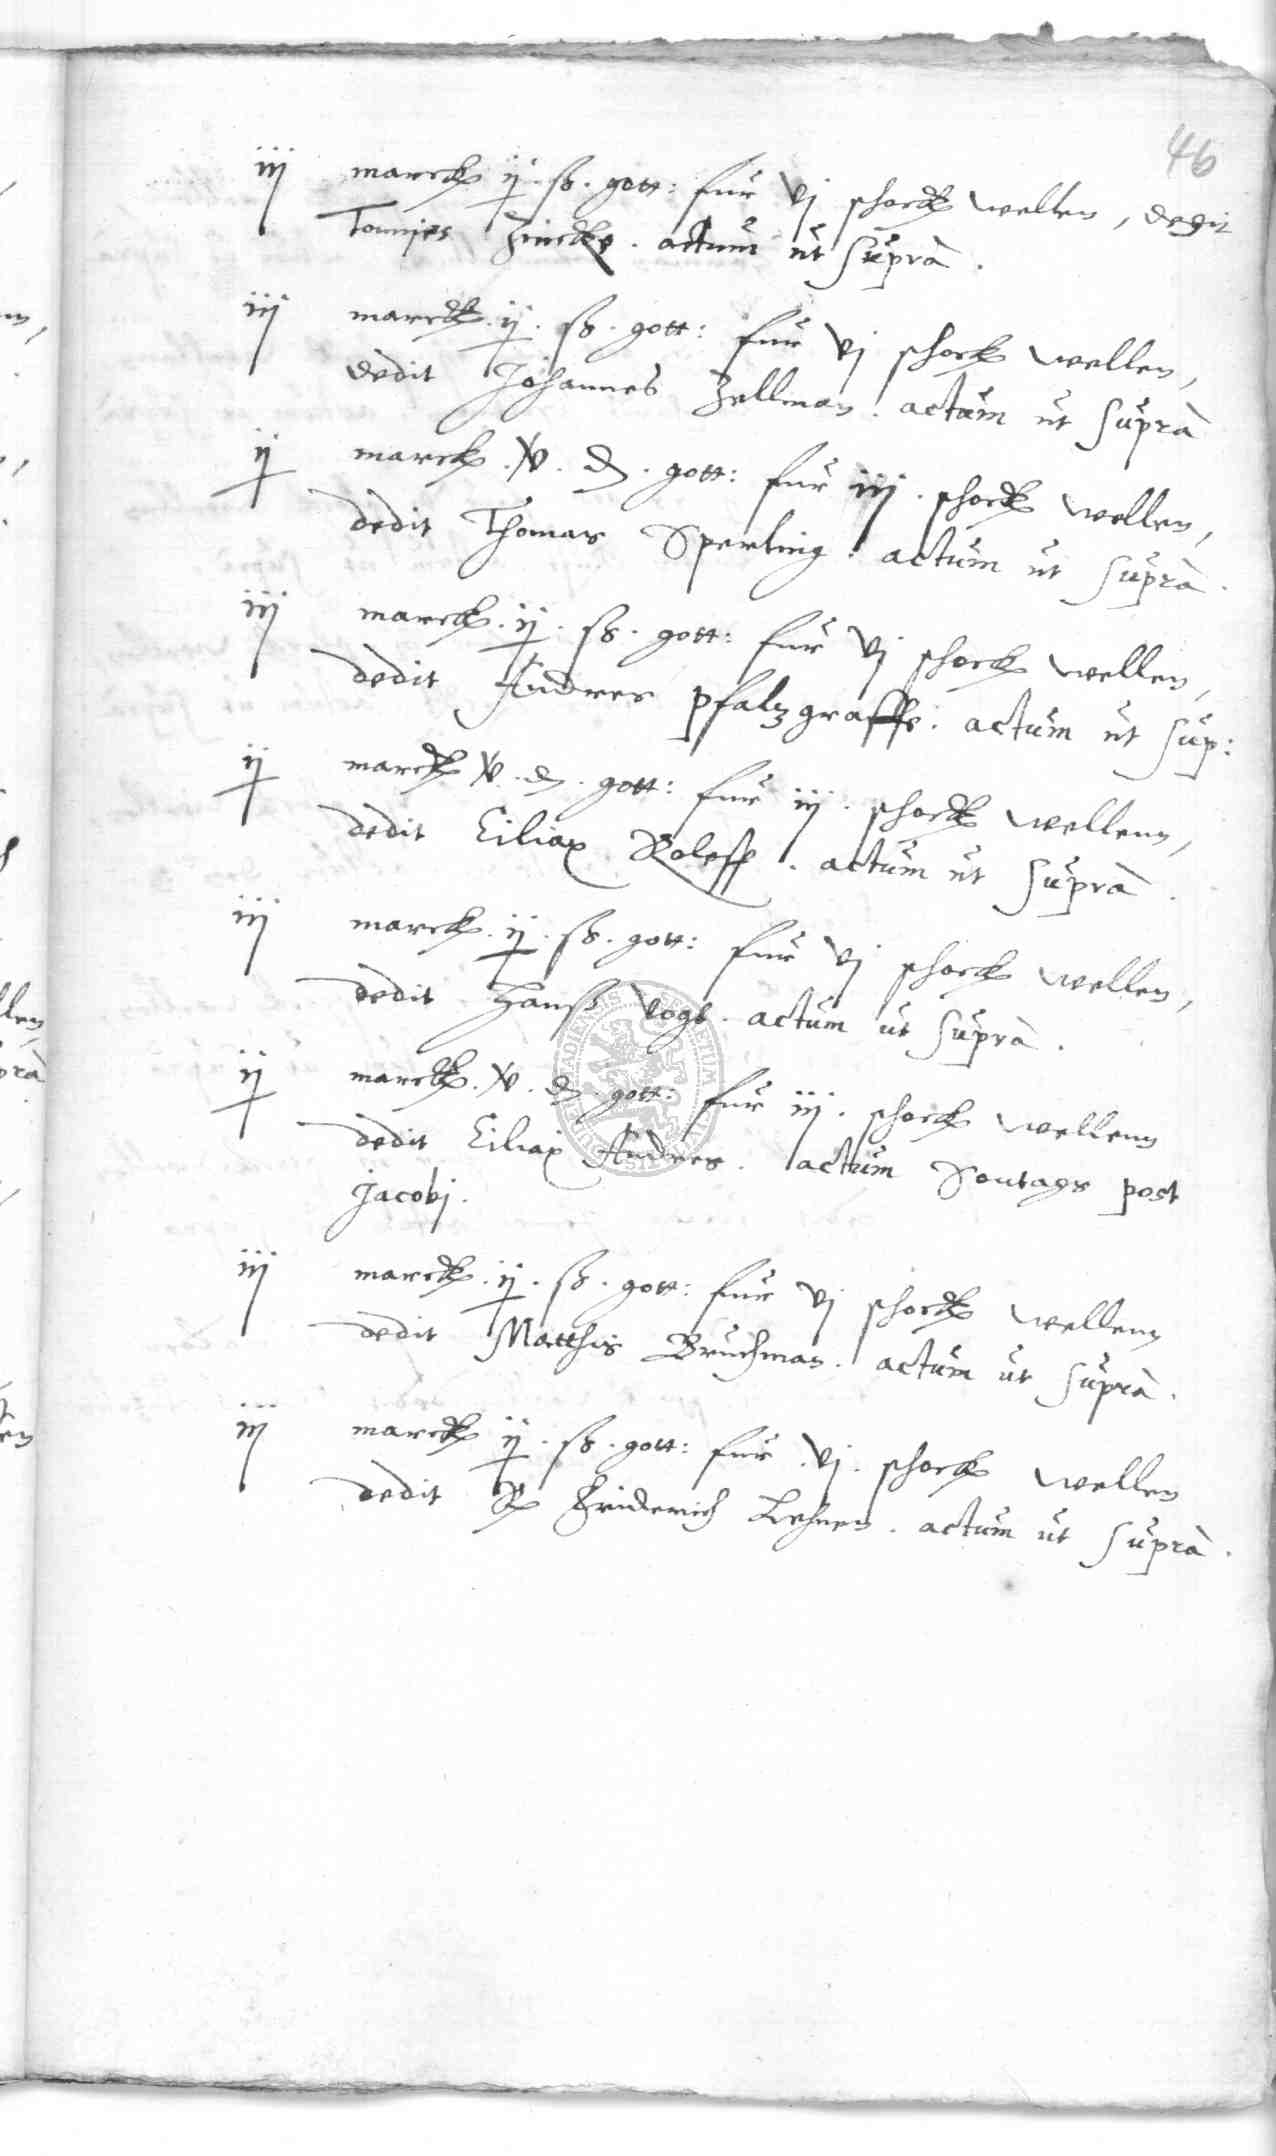 46
iij marck ij ß. gott: fur vj schock wellen, dedit
Tonnies Zincke. actum ut supra.
iij marck. ij. ß. gott: fur vj schock wellen,
dedit Johannes Zellman. actum ut supra
ij marck. v. d. gott: fur iij. schock wellen,
dedit Thomas Sperling. actum ut supra.
iij marck. ij. ß. gott: fur vj schock wellen,
dedit Andres pfalzgraffe. actum ut sup:
ij marck v. d. gott: fur iij. schock wellenn,
dedit Ciliax Roleff. actum ut supra.
iij marck. ij. ß. gott: fur vj schock wellen,
dedit Hanß Vogt. actum ut supra.
ij marck. v. d. gott: fur iij. schock wellenn
dedit Ciliax Andres. actum Sontags post
Jacobj.
iij marck. ij. ß. gott: fur vj schock wellenn
dedit Matthis Bruchman. actum ut supra.
iij marck ij. ß. gott: fur. vj. schock wellen
dedit Friderich Lehnen. actum ut supra.